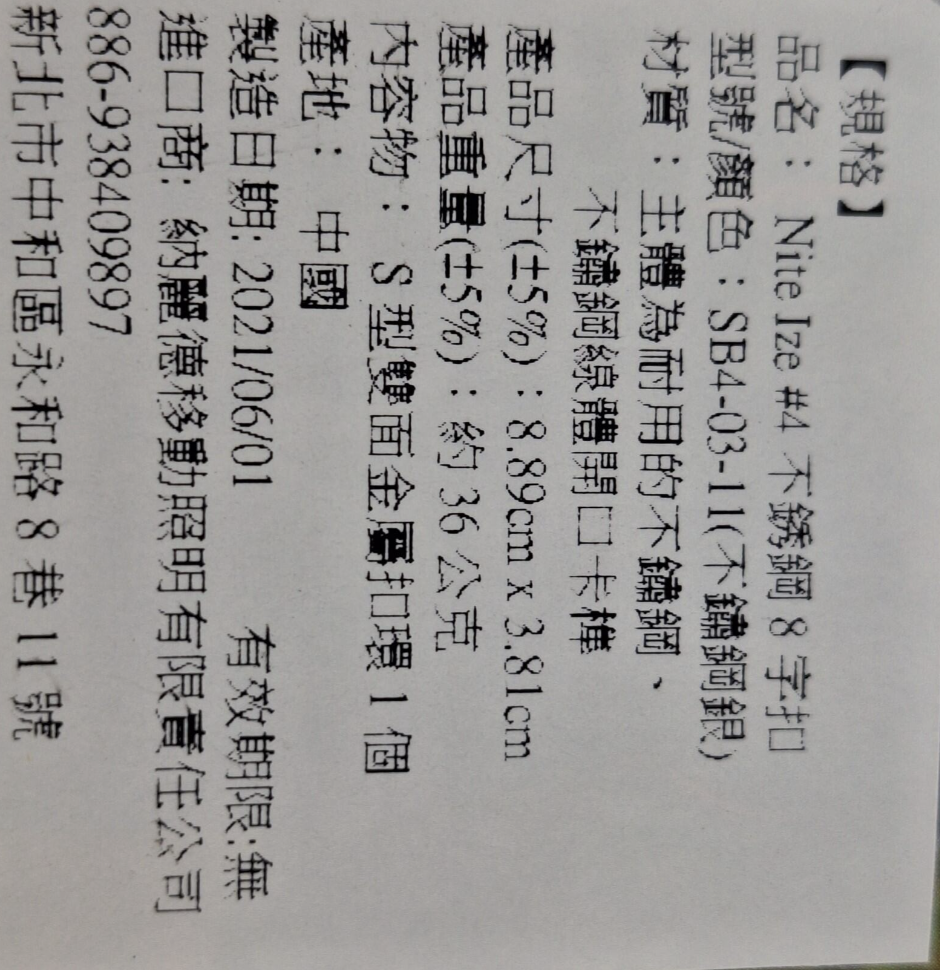 【規格】
品名： Nite Ize #4 不銹鋼 8 字扣
型號/顏色：SB4-03-11(不鏽鋼銀)
材質：主體為耐用的不鏽鋼、
不鏽鋼線體開口卡榫
產品尺寸(±5%)：8.89cm x 3.81cm
產品重量(±5%)：約 36 公克
內容物： S 型雙面金屬扣環 1 個
產地： 中國
製造日期: 2021/06/01 有效期限:無
進口商: 納麗德移動照明有限責任公司
886-938409897
新北市中和區永和路 8 巷 11 號